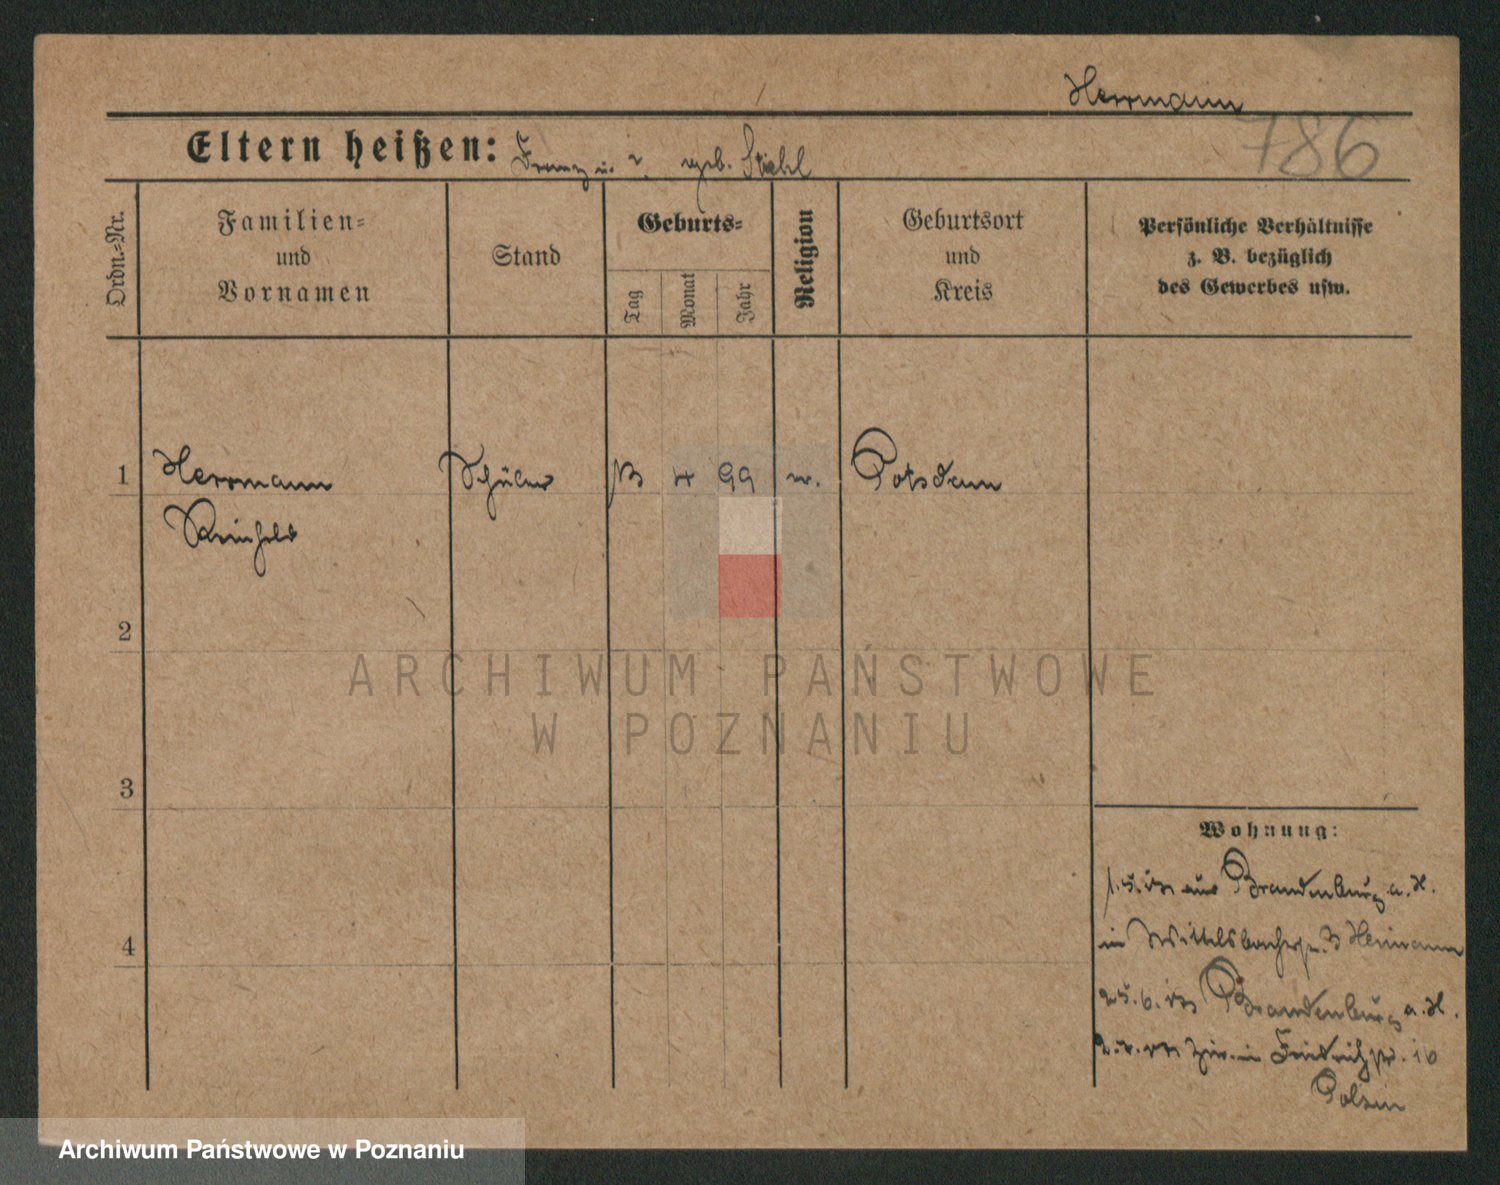 Herrmann
786
Eltern heißen: Franz u. ? geb. Stiehl
Ordn.-Nr.
Familien-
und
Vornamen
Stand
Geburts-
Tag
Monat
Jahr
Religion
Geburtsort
und
Kreis
Persönliche Verhältnisse
z. B. bezüglich
des Gewerbes usw.
1 Herrmann Schüler 13 4 99 Potsdam
Reinhold
2
3
4
Wohnung:
1.5. aus Brandenburg a. H.
in Wittelsbacherstr. 3 Herrmann
25.6. Brandenburg a. H.
in Friedrichstr. 16
Polzin
ARCHIWUM PAŃSTWOWE
W POZNANIU
Archiwum Państwowe w Poznaniu